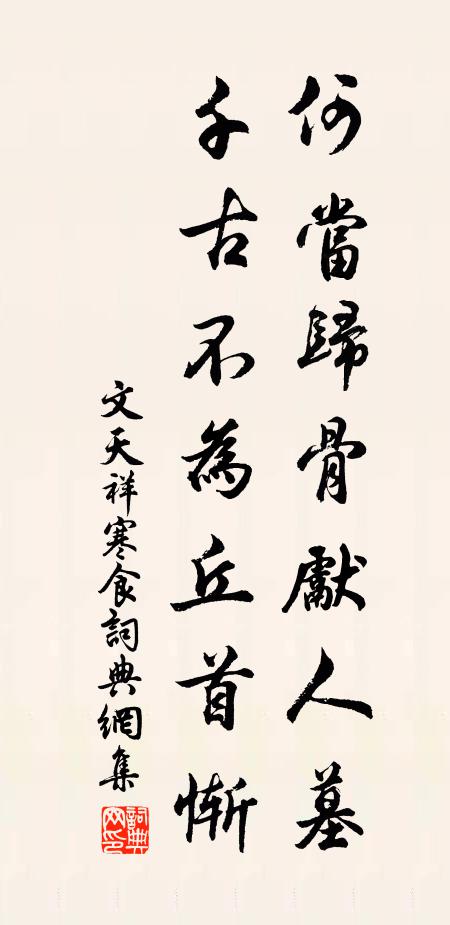 何當歸骨獻人墓
千古不為丘首慚
文天祥寒食詞典網集
詞典
网印